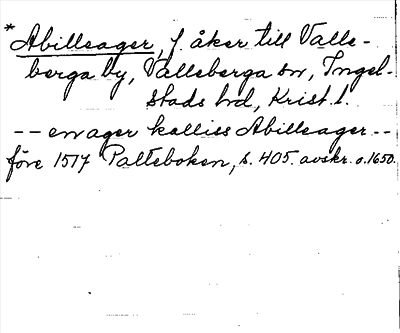 *Abilleager, f. åker till Valle-
berga by, Valleberga sn, Ingel-
stads hd, Krist. l.
-- en ager kalliss Abilleager --
före 1517 Palteboken, s. 405. avskr. o. 1650.